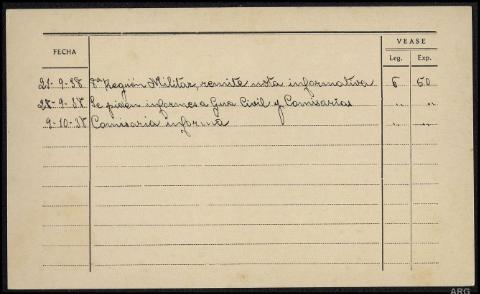 VEASE
FECHA Leg. Exp.
21-9-38 8ª Región Militar remite nota informativa 6 50
28-9-38 Se piden informes a Gura Civil y Comisarías " "
9-10-38 Comisaría informa " "
ARG